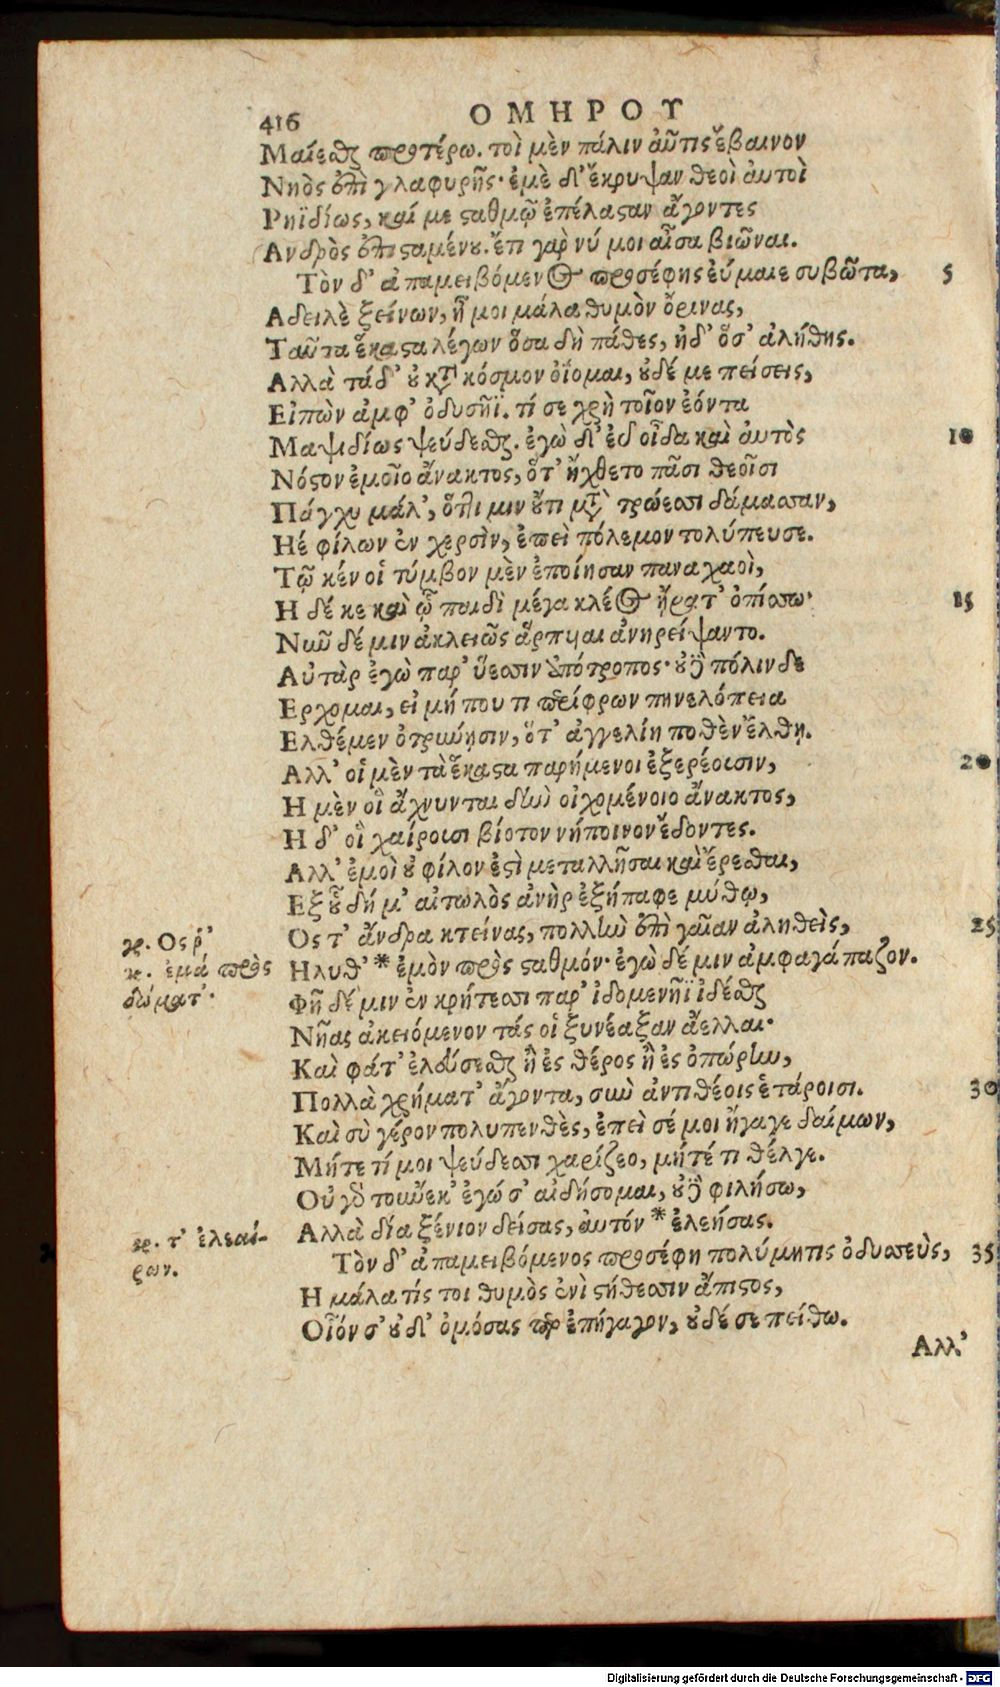 416 ΟΜΗΡΟΥ
Μαίεσθαι προτέρω. τοὶ μὲν πάλιν αὖτις ἔβαινον
Νηὸς ἐπὶ γλαφυρῆς· ἐμὲ δ' ἔκρυψαν θεοὶ αὐτοὶ
Ρηϊδίως, καί με σαθμῷ ἐπέλασαν ἄγοντες
Ανδρὸς ἐπισαμένου. ἔτι γάρ νύ μοι αἶσα βιῶναι.
Τὸν δ' ἀπαμειβόμενος προσέφης εὔμαιε συβῶτα, 5
Α δειλὲ ξείνων, ἦ μοι μάλα θυμὸν ὄρινας,
Ταῦτα ἕκαστα λέγων ὅσα δὴ πάθες, ἠδ' ὅσ' ἀλήθης.
Αλλὰ τάδ' οὐ κτ κόσμον ὀΐομαι, οὐδέ με πείσεις,
Εἰπὼν ἀμφ' ὀδυσῆϊ. τί σε χρὴ τοῖον ἐόντα
Μαψιδίως ψεύδεσθαι. ἐγὼ δ' εὖ οἶδα καὶ αὐτὸς 10
Νόστον ἐμοῖο ἄνακτος, ὅτ' ἤχθετο πᾶσι θεοῖσι
Πάγχυ μάλ', ὅττι μιν οὔτι μτ τρώεσσι δάμασσαν,
Ηέ φίλων ἐν χερσὶν, ἐπεὶ πόλεμον τολύπευσε.
Τῷ κέν οἱ τύμβον μὲν ἐποίησαν παναχαοὶ,
Η δέ κε καὶ ᾧ παιδὶ μέγα κλέος ἤρατ' ὀπίσσω·
15
Νῦν δέ μιν ἀκλειῶς ἅρπυιαι ἀνηρείψαντο.
Αὐτὰρ ἐγὼ παρ' ὕεσσιν ὑπότροπος· οὐδὲ πόλινδε
Ερχομαι, εἰ μή που τι περίφρων πηνελόπεια
Ελθέμεν ὀτρύνῃσιν, ὅτ' ἀγγελίη ποθὲν ἔλθῃ.
Αλλ' οἱ μὲν τὰ ἕκαστα παρήμενοι ἐξερέουσιν, 20
Η μὲν οἳ ἄχνυνται δὴν οἰχομένοιο ἄνακτος,
Η δ' οἳ χαίρουσι βίοτον νήποινον ἔδοντες.
Αλλ' ἐμοὶ οὐ φίλον ἐστὶ μεταλλῆσαι καὶ ἔρεσθαι,
Εξ οὗ δή μ' αἰτωλὸς ἀνὴρ ἐξήπαφε μύθῳ,
Ος τ' ἄνδρα κτείνας, πολλὴν ἐπὶ γαῖαν ἀληθεὶς, 25
γρ. Ος ῥ'
Ηλυθ' * ἐμὸν πρὸς σταθμόν· ἐγὼ δέ μιν ἀμφαγάπαζον.
κ. ἐμά πρὸς
Φῆ δέ μιν ἐν κρήτεσσι παρ' ἰδομενῆϊ ἰδέσθαι
δώματ'·
Νῆας ἀκειόμενον τάς οἱ ξυνέαξαν ἄελλαι·
Καὶ φάτ' ἐλεύσεσθαι ἢ ἐς θέρος ἢ ἐς ὀπώρην,
Πολλὰ χρήματ' ἄγοντα, σὺν ἀντιθέοις ἑτάροισι. 30
Καὶ σὺ γέρον πολυπενθὲς, ἐπεὶ σέ μοι ἤγαγε δαίμων,
Μήτε τί μοι ψεύδεσσι χαρίζεο, μήτέ τι θέλγε.
Οὐ γὰρ τοὔνεκ' ἐγώ σ' αἰδήσομαι, οὐδὲ φιλήσω,
Αλλὰ δία ξένιον δείσας, αὐτόν * ἐλεήσας.
γρ. τ' ἐλεαί-
ρων.
Τὸν δ' ἀπαμειβόμενος προσέφη πολύμητις ὀδυσσεὺς, 35
Η μάλα τίς τοι θυμὸς ἐνὶ στήθεσσιν ἄπιστος,
Οἷόν σ' οὐδ' ὀμόσας περ ἐπήγαγον, οὐδέ σε πείθω.
Αλλ'
Digitalisierung gefördert durch die Deutsche Forschungsgemeinschaft - DFG